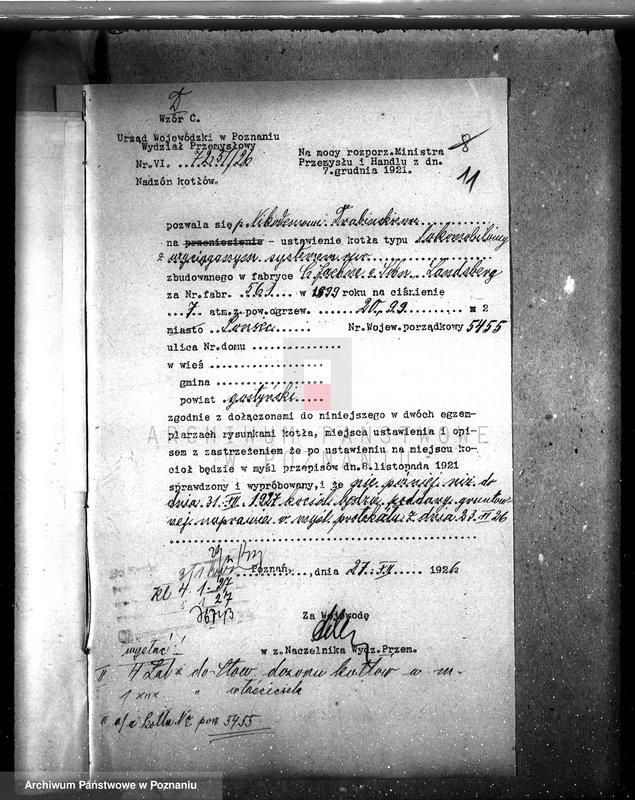 D
Wzór C.
Urząd Wojewódzki w Poznaniu
Wydział Przemysłowy
Nr.VI. ..7251/26
Nadzór kotłów.
Na mocy rozporz.Ministra
Przemysłu i Handlu z dn.
7.grudnia 1921.
8
11
pozwala się p. Nikodemowi
na przeniesienie - ustawienie kotła typu Lokomobilowy
z wyciąganym systemem rur
zbudowanego w fabryce Landsberg
za Nr.fabr. 561 w 1899 roku na ciśnienie
...7 atm.z pow.ogrzew. 20,99 m 2
miasto Nr.Wojew.porządkowy 5455
ulica Nr.domu
w wieś
gmina
powiat gostyński
zgodnie z dołączonemi do niniejszego w dwóch egzem-
plarzach rysunkami kotła, miejsca ustawienia i opi-
sem z zastrzeżeniem że po ustawieniu na miejscu ko-
cioł będzie w myśl przepisów dn.8.listopada 1921
sprawdzony i wypróbowany, i że nie później niż do
dnia 31.XII.1927 kocioł będzie poddany gruntow
nej naprawie w myśl protokółu z dnia 23 XI 26
Poznań, dnia 27.XII 1926
Kl 4. 1-27
27
Za Wojewodę
w z.Naczelnika Wydz.Przem.
wysłać!
II 4 Zał do Stow. dozoru kotłów w m.
1 " właściciela
II a/a kotła Nr porz 5455
ARCHIWUM PAŃSTWOWE
W POZNANIU
Archiwum Państwowe w Poznaniu